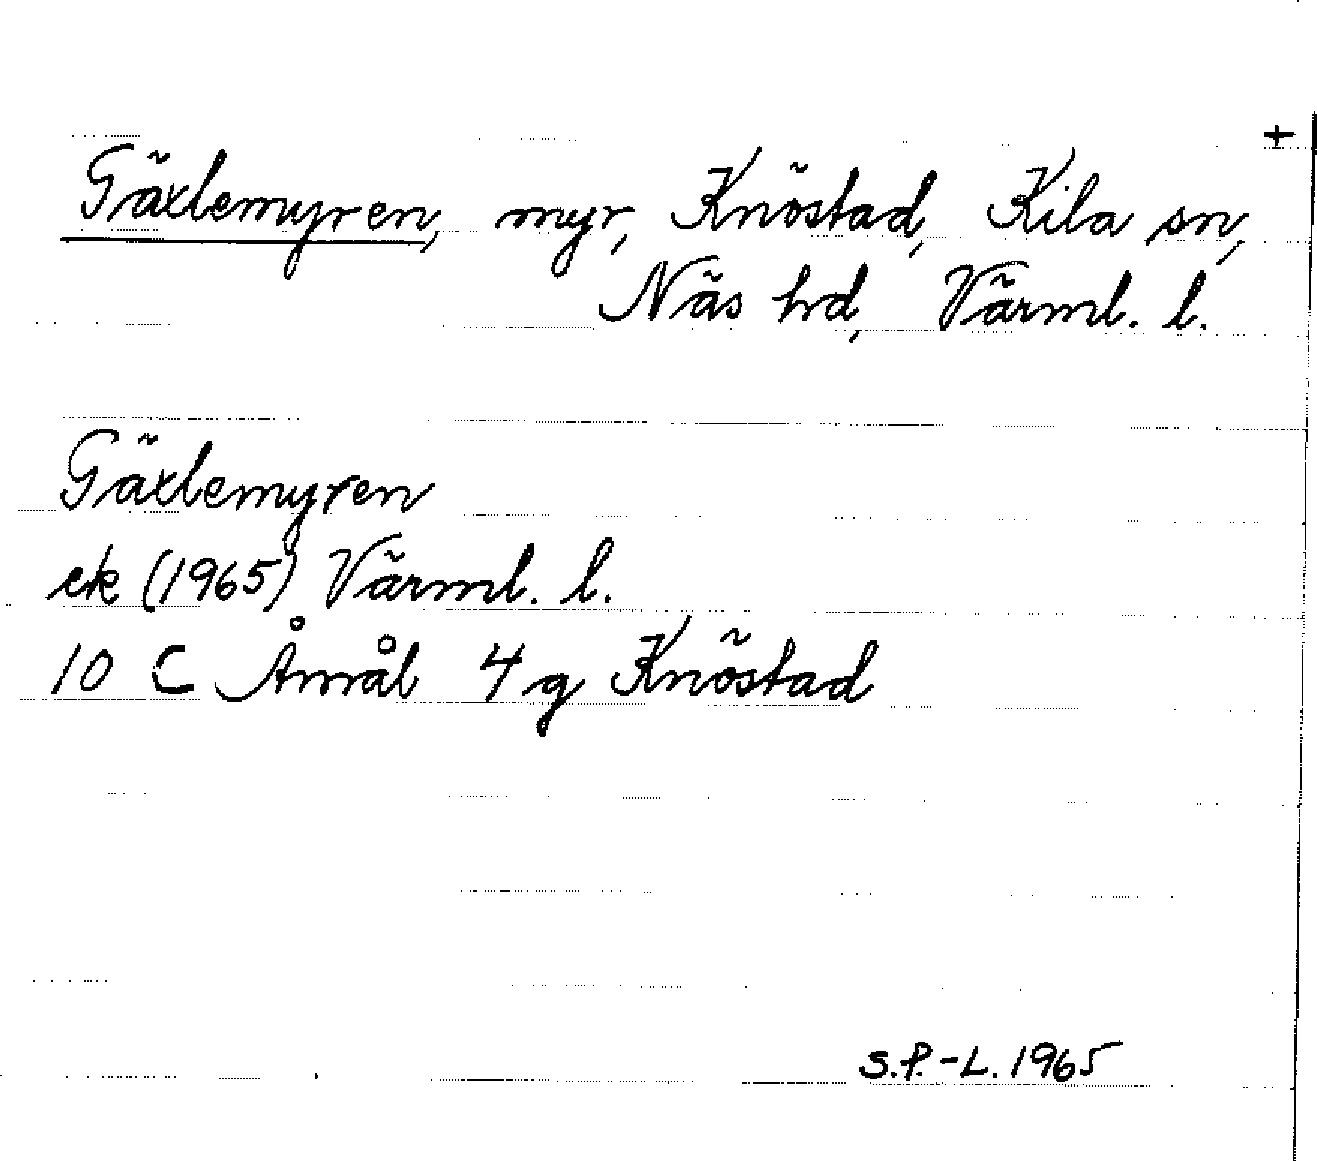 +
Gäxlemyren, myr, Knöstad, Kila sn,
Näs hd, Värml. l.
Gäxlemyren
ek (1965) Värml. l.
10 C Åmål 4 g Knöstad
S.P.-L. 1965